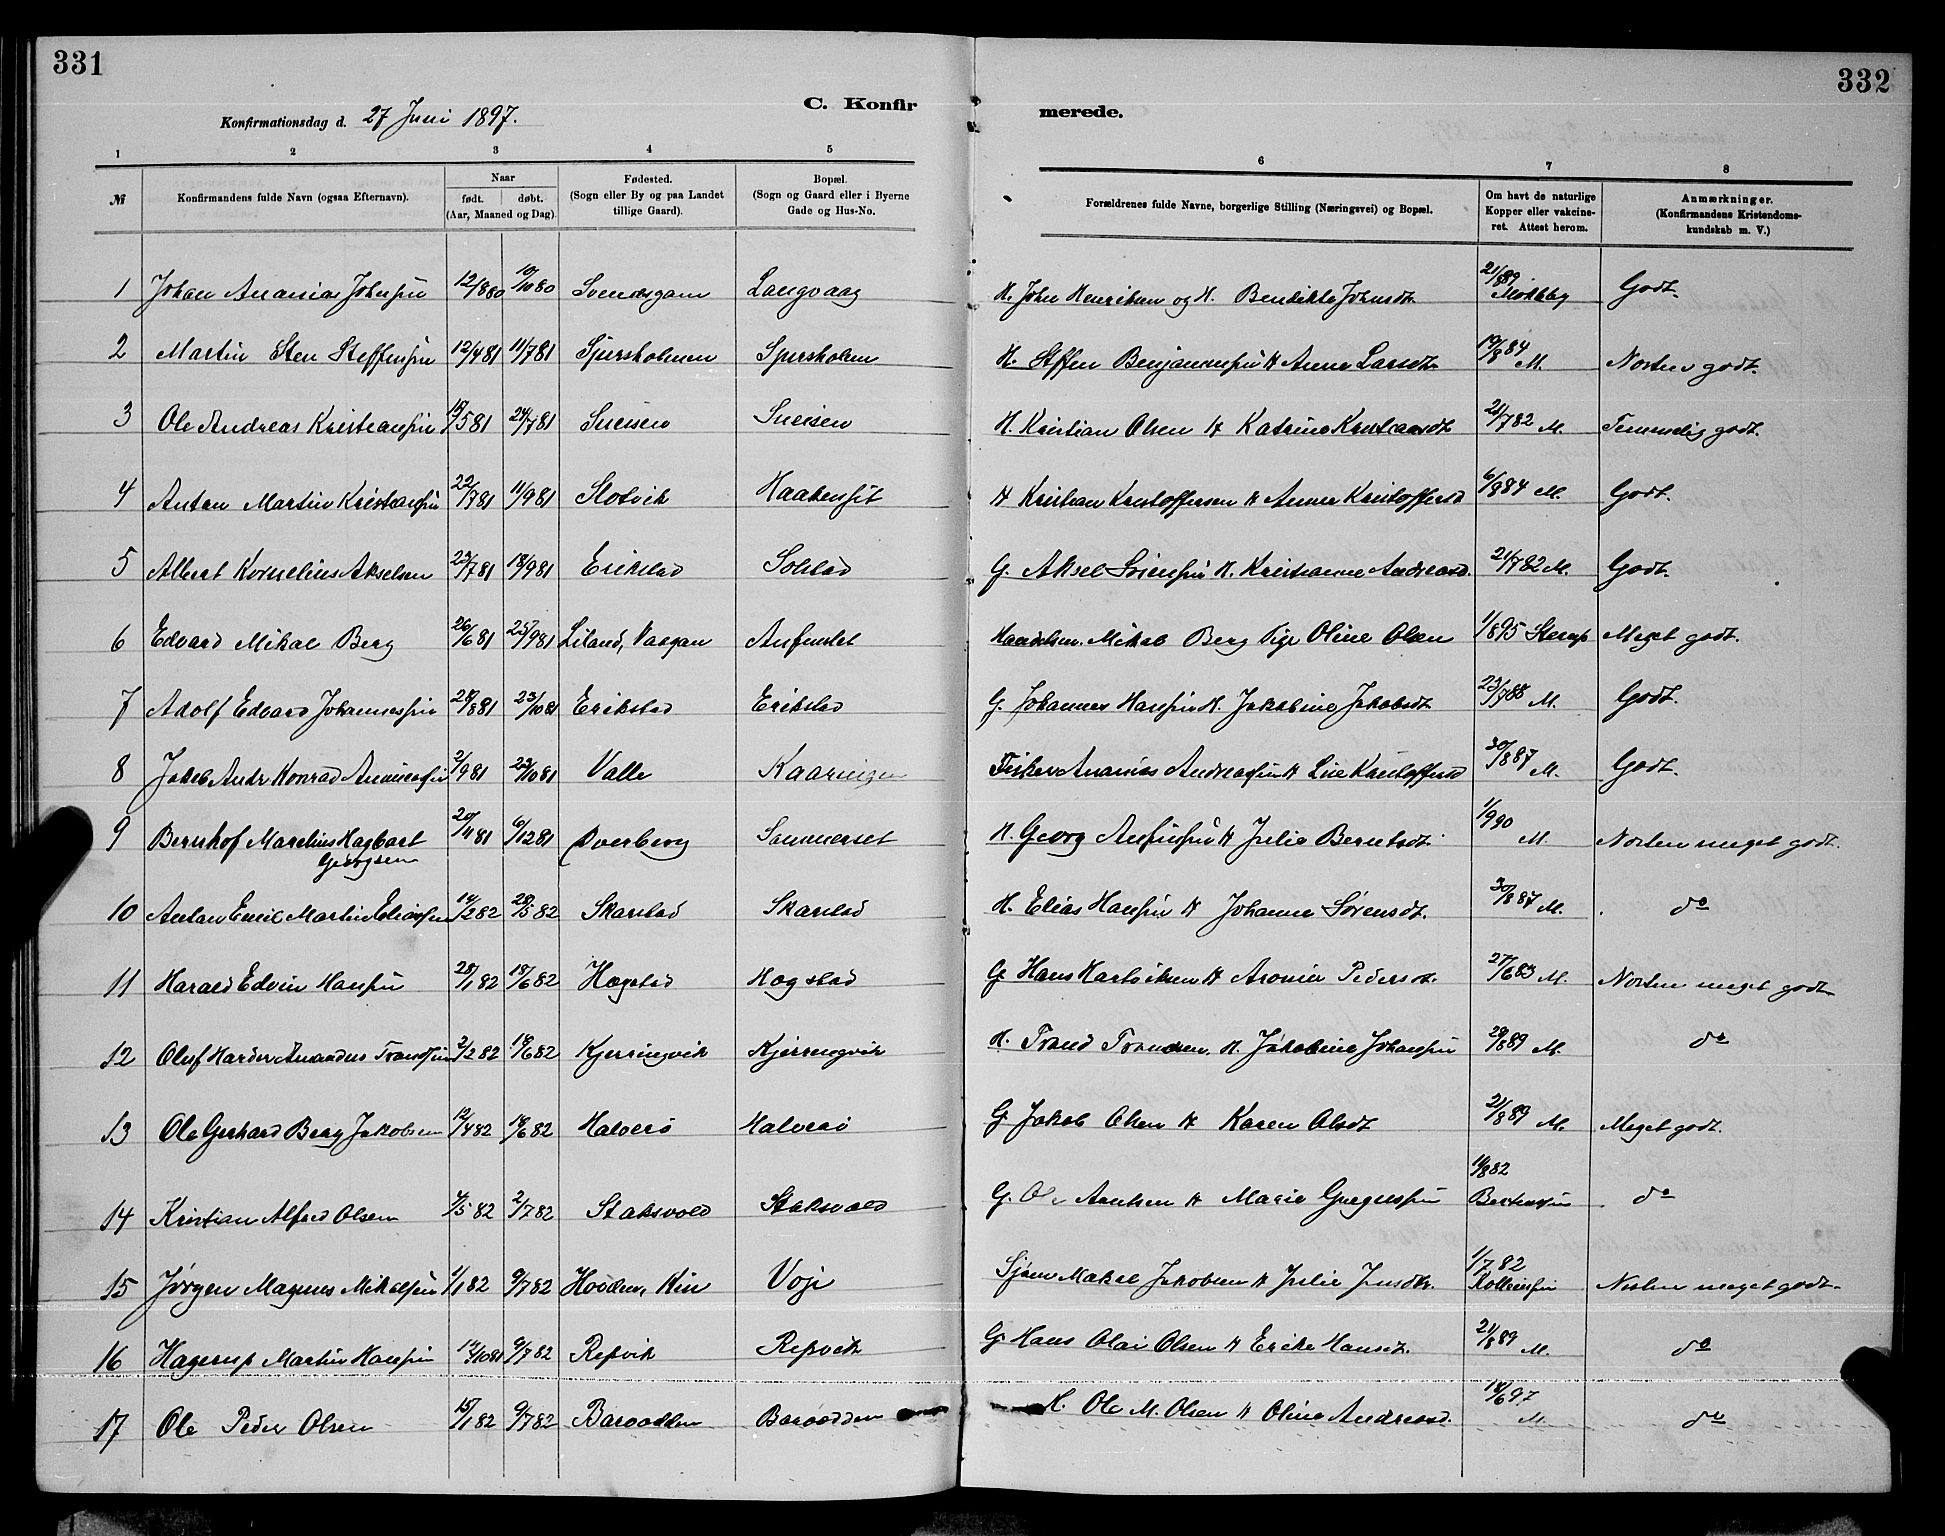 331
332
C. Konfir
merede.
Konfirmationsdag d. 27 Juni 1897.
1 2 3 4 5
6 7 8
№ Konfirmandens fulde Navn (ogsaa Efternavn).
Naar
født. døbt.
(Aar, Maaned og Dag).
Fødested.
(Sogn eller By og paa Landet
tillige Gaard).
Bopæl.
(Sogn og Gaard eller i Byerne
Gade og Hus-No.
Forældrenes fulde Navne, borgerlige Stilling (Næringsvei) og Bopæl.
Om havt de naturlige
Kopper eller vakcine-
ret. Attest herom.
Anmærkninger.
(Konfirmandens Kristendoms-
kundskab m. V.)
1 Johan Ananias Johnsen 12/8 80 10/10 80 Langvaag H. John Henriksen og H. Bendikte Johnsdt. 21/8 89 Godt.
2 Martin Sten Steffensen 12/4 81 11/7 81 H. Steffen Benjaminsen H Anne Larsdt. 19/8 84 M. Noksaa godt.
3 Ole Andreas Kristiansen 24/7 81 H. Kristian Olsen H Katrine Kristiansdt 21/7 82 M. Temmelig godt.
4 Anton Martin Kristiansen 22/7 81 11/9 81 Slotvik Haakenset H Kristian Kristoffersen H Anne Kristoffersd 6/8 84 M. Godt.
5 Albert Kornelius Akselsen 23/7 81 18/9 81 Erikstad Solstad G. Aksel Sørensen H. Kristianne Andreasd. 21/7 82 M. Godt.
6 Edvard Mikal Berg 26/6 81 25/9 81 Liland, Vaagan Handelsm. Mikal Berg Pige Oline Olsen 1/8 95 Meget godt.
7 Adolf Edvard Johannessen 28/8 81 23/10 81 Erikstad Erikstad G. Johannes Hansen H. Jakobine Jakobsdt 23/7 88 M. Godt.
8 Jakob Andr Konrad Ananiassen 2/9 81 23/10 81 Valle Kaaringen Fisker Ananias Andreassen H Line Kristoffersd 30/8 87 M. Godt.
9 Bernhof Marelius Hagbart
Georgsen 20/11 81 6/12 81 Dverberg Sommerset H. Georg Anfinsen H Julie Berntsdt. 1/9 90 M. Noksaa meget godt.
10 Anton Emil Martin Eliassen 14/2 82 28/5 82 Skarstad Skarstad H. Elias Hansen H Johanne Sørensdt. 30/8 87 M. do
11 Harald Edvin Hansen 28/1 82 18/6 82 Hægstad Hægstad G Hans Hartviksen H Aronia Pedersdt. 27/6 83 M. Noksaa meget godt
12 Oluf Harder Amandus Trondsen 2/2 82 18/6 82 Kjerringvik Kjerringvik H. Trond Trondsen. H. Jakobine Johansen 29/8 89 M. do
13 Ole Gerhard Berg Jakobsen 12/4 82 18/6 82 Halverø Halverø G Jakob Olsen H Karen Olsdt 21/8 89 M. Meget godt.
14 Kristian Alfred Olsen 4/5 82 2/7 82 Stoksvold Stoksvold G. Ole H Marie Gregussen 11/8 82 Bertensen do
15 Jørgen Magnus Mikalsen 1/1 82 9/7 82 Kin Voje Jakobsen H Julie 1/7 82 Noksaa meget godt.
16 Hagerup Martin Hansen 14/10 81 9/7 82 Repvik Repvik G Hans Olai Olsen H Erike Hansdt. 21/8 89 M. do
17 Ole Peder Olsen 15/1 82 9/7 82 Barvodden Barvodden H. Ole M. Olsen H Oline Andreasd. 14/6 97 M. do